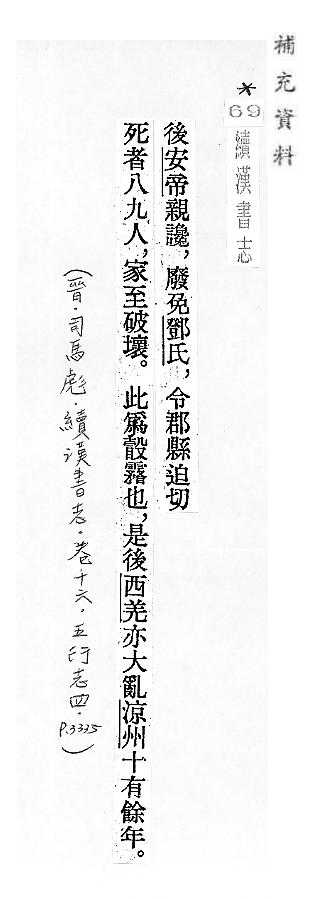 補充資料
*
69
續漢書志
後安帝親讒，廢免鄧氏，令郡縣迫切
死者八九人，家至破壞。此為瞉霿也，是後西羌亦大亂涼州十有餘年。
(晉．司馬彪．續漢書志．卷十六．五行志四．P.3335)